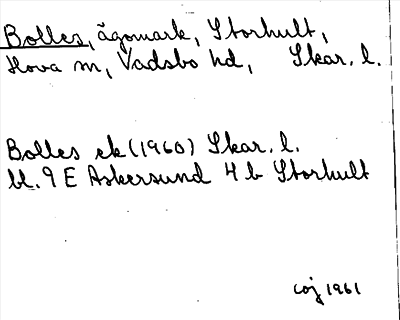 Bolles, ägomark, Storhult,
Hova sn, Vadsbo hd, Skar. l.
Bolles ek (1960) Skar. l.
bl. 9 E Askersund 4 b Storhult
COJ 1961